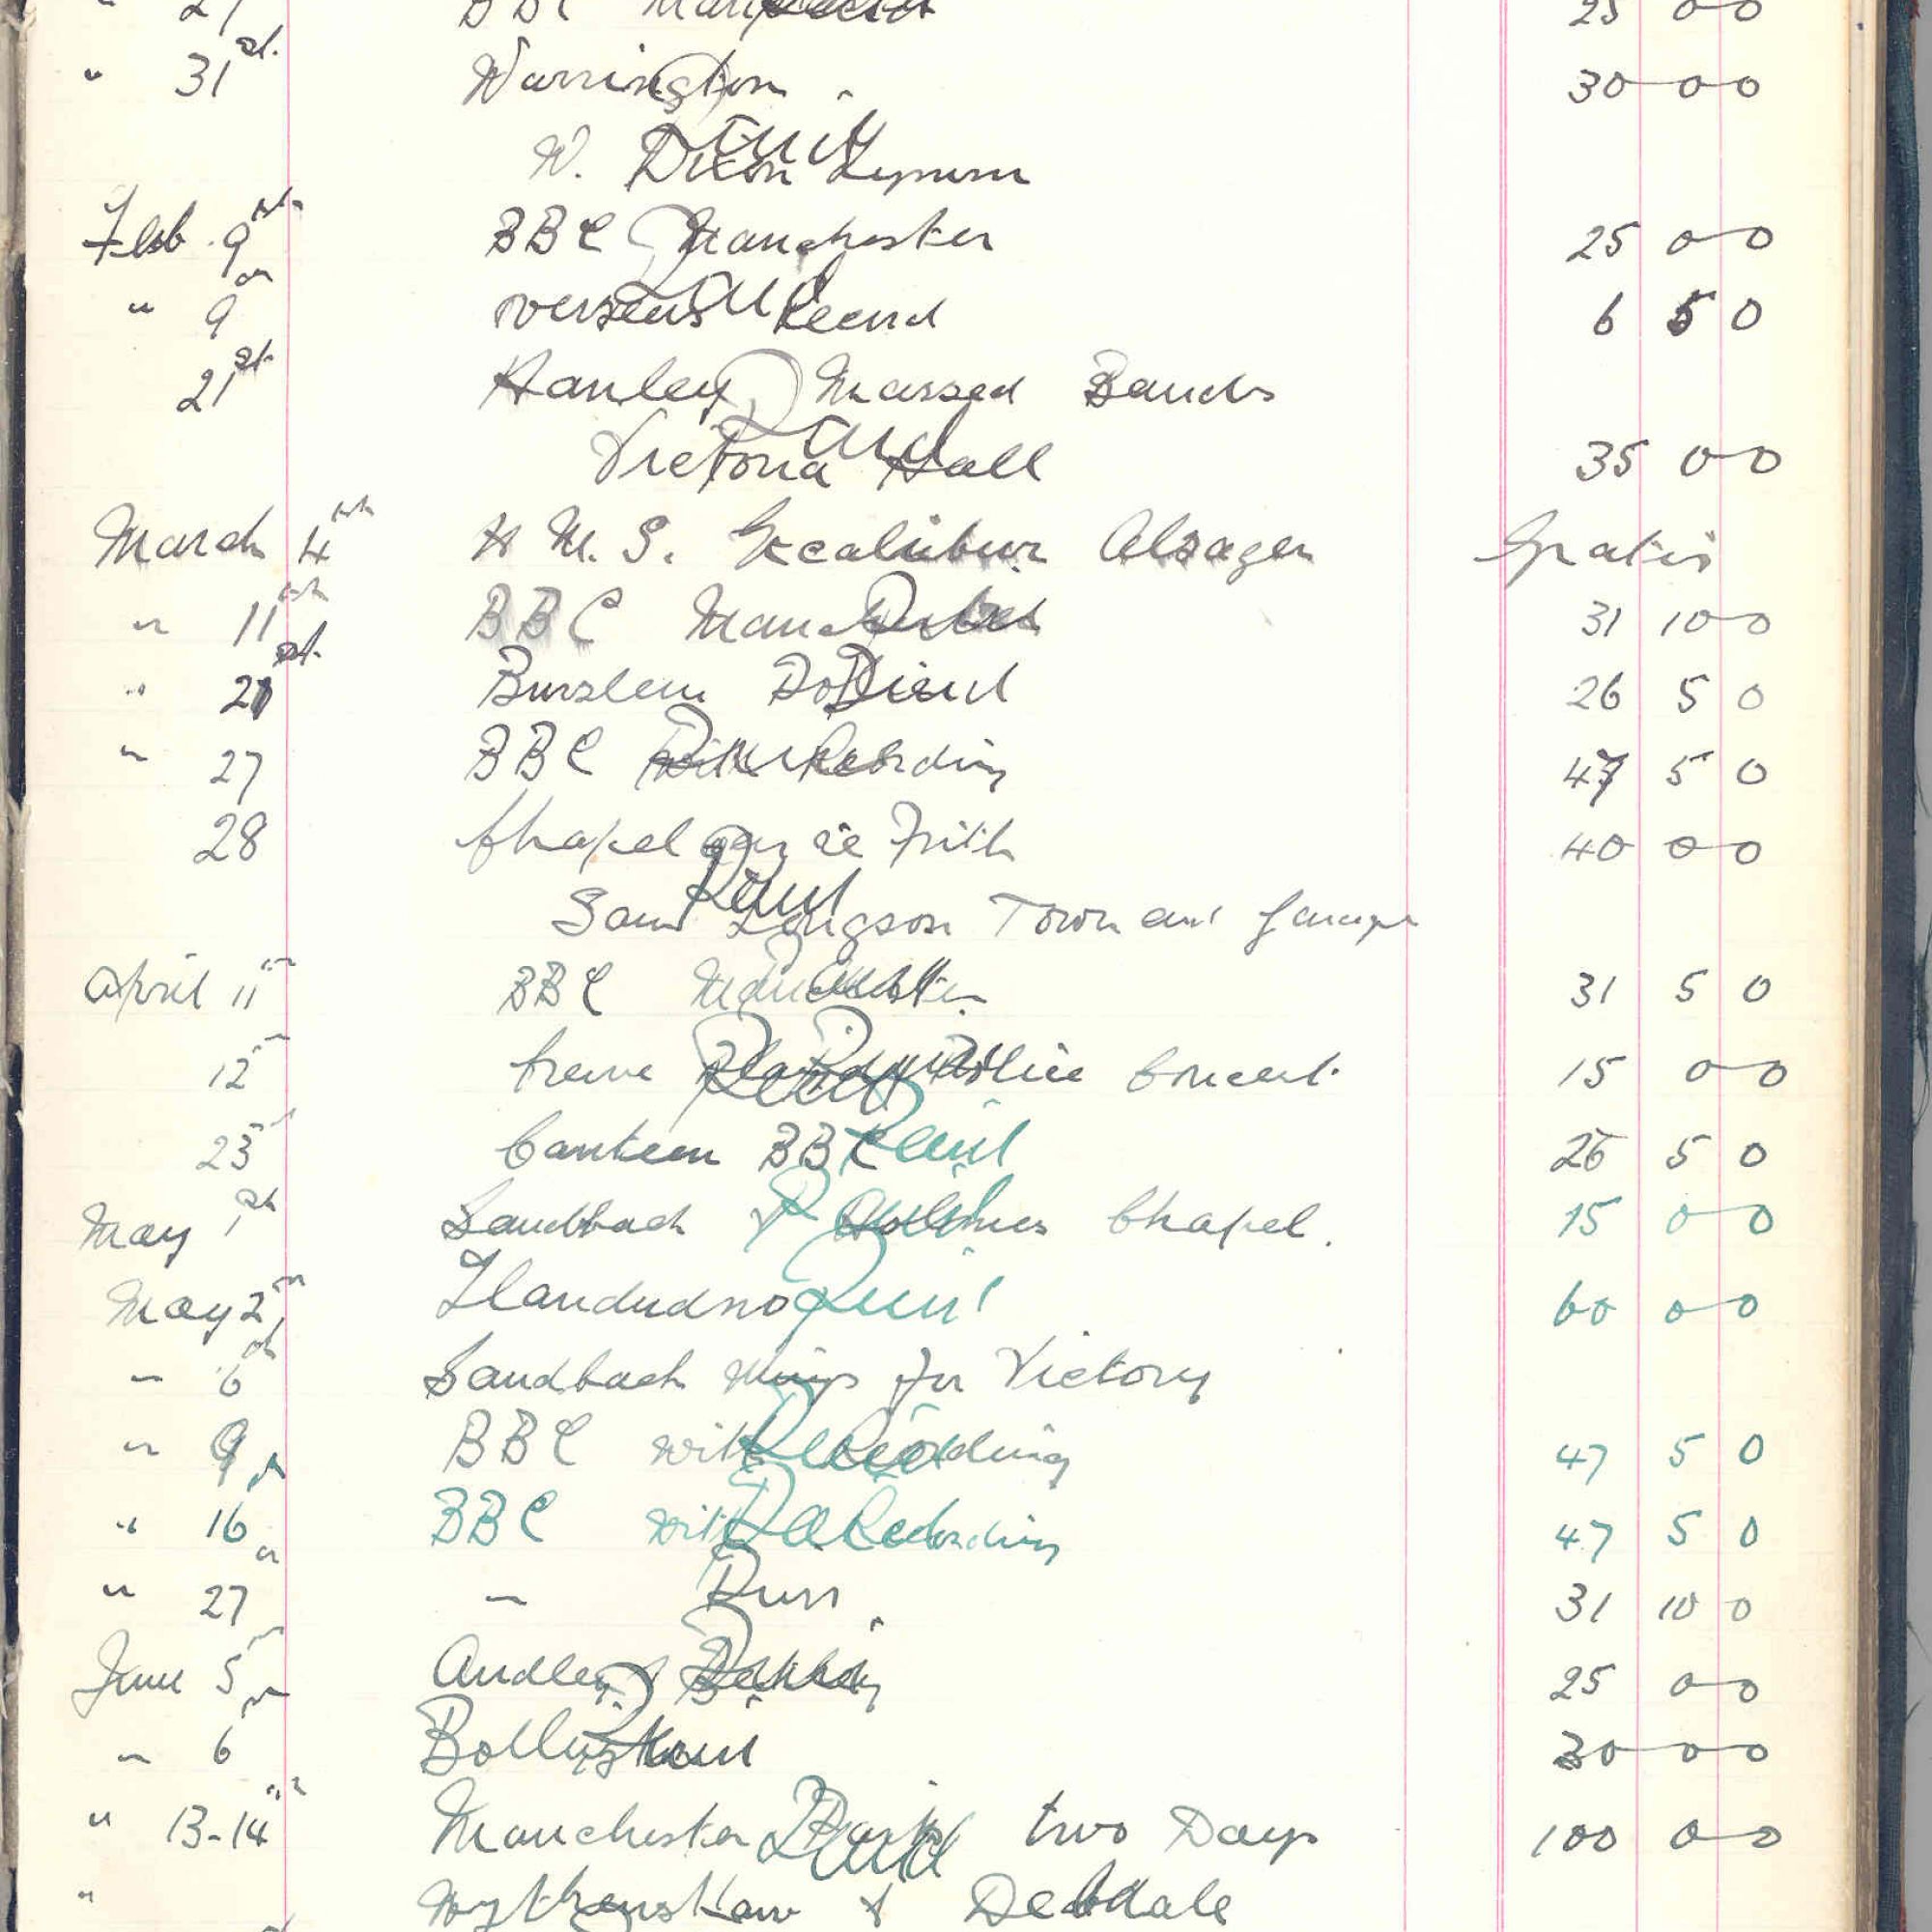 BBC 25 0 0
" 31st. Warrington. 30 0 0
Paid
W. Dixon Lymm
Feb. 9th BBC Manchester 25 0 0
Paid
" 9th Overseas Record 6 5 0
21st Hanley Massed Bands
Paid
Victoria Hall 35 0 0
March 4th H M. S. Excalibur Alsager Gratis
" 11th BBC Manchester Paid 31 10 0
" 21st. Burslem Paid 26 5 0
" 27 BBC with Recording Paid 47 5 0
28 Chapel en le Frith 40 0 0
Paid
Sam Longson Town and Garage
April 11th BBC Manchester Paid 31 5 0
12th Crewe Police Concert. Paid 15 0 0
23rd Canteen BBC Paid 26 5 0
May 1st Sandbach & Holmes Chapel. Paid 15 0 0
May 2nd Llandudno Paid 60 0 0
" 6th Sandbach Wings for Victory
" 9th BBC with Recording Paid 47 5 0
" 16th BBC with Recording Paid 47 5 0
" 27 " 31 10 0
June 5th Audley Paid 25 0 0
" 6th Bollington Paid 30 0 0
" 13-14th Manchester Parks two Days 100 0 0
Paid
" Wythenshaw & Debdale